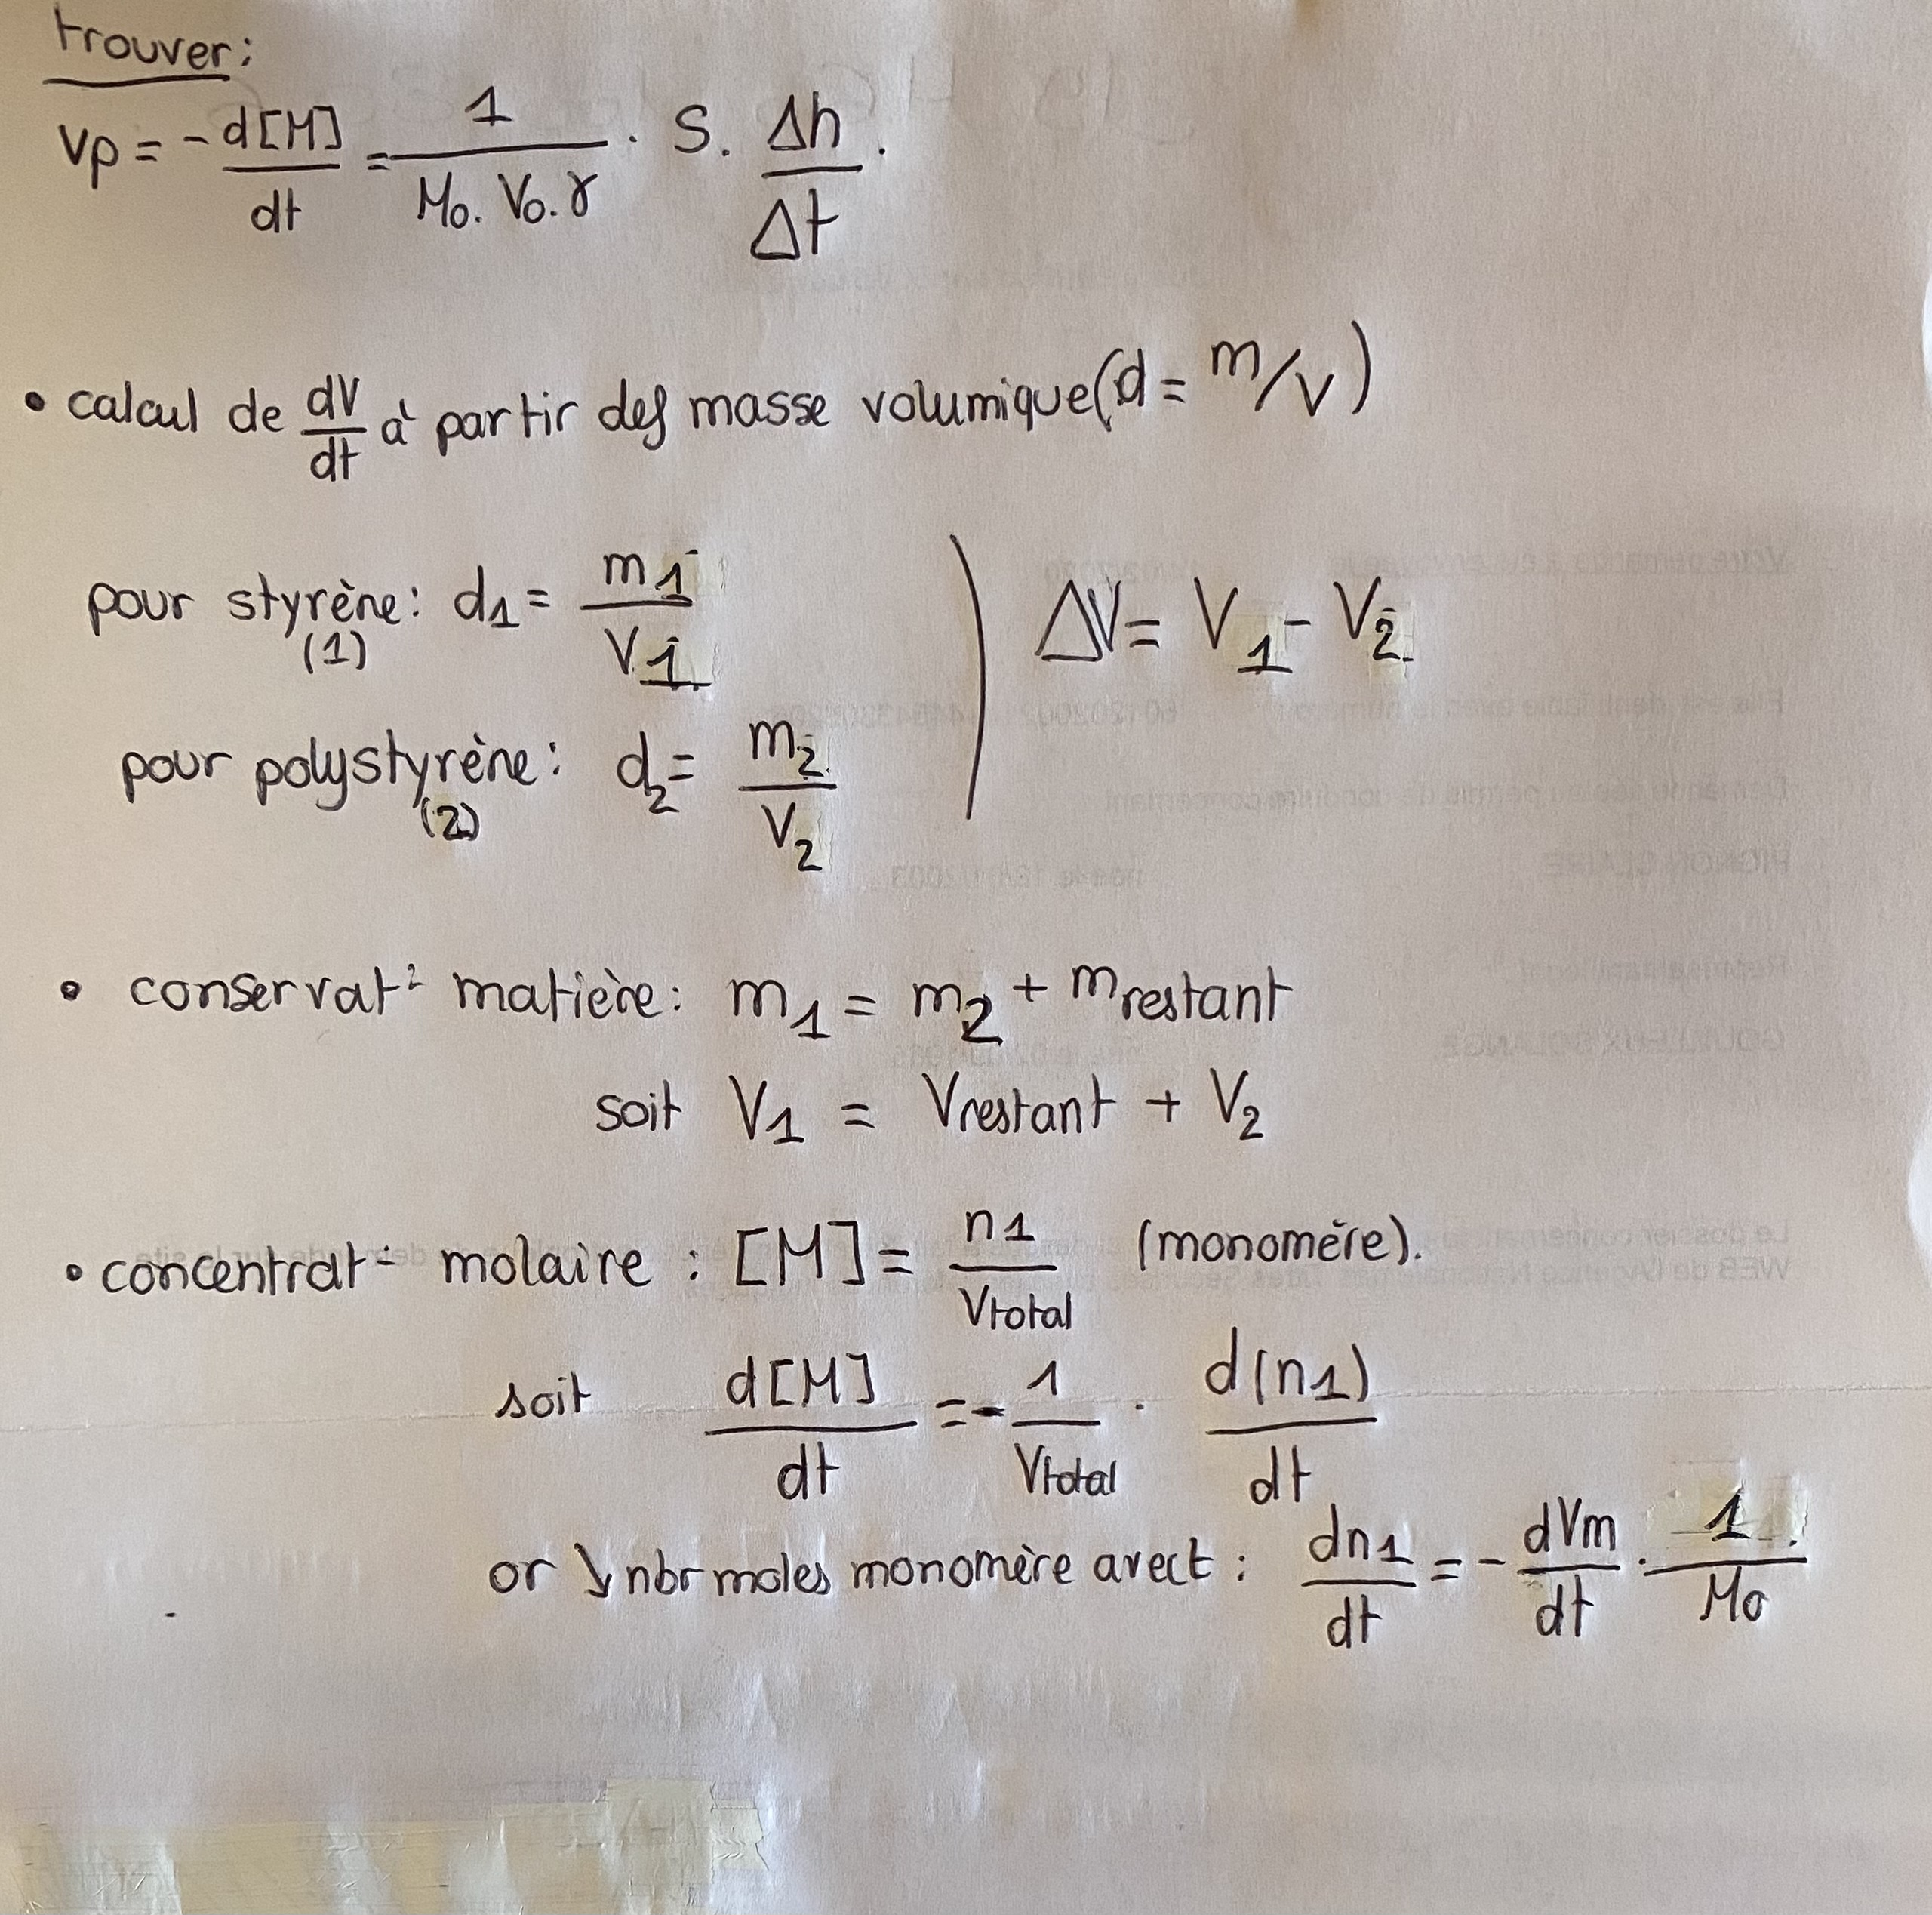 trouver:
vp = - d[M]/dt = 1/(M0. V0. γ) . S. Δh/Δt .
• calcul de dV/dt à partir des masse volumique (d = m/V)
pour styrène: d1 = m1/V1
(1)
ΔV = V1 - V2
pour polystyrène: d2 = m2/V2
(2)
• conservat° matière: m1 = m2 + mrestant
soit V1 = Vrestant + V2
• concentrat° molaire : [M] = n1/Vtotal (monomère).
soit d[M]/dt = - 1/Vtotal . d(n1)/dt
or ↘ nbr moles monomère avec t : dn1/dt = - dVm/dt . 1/M0